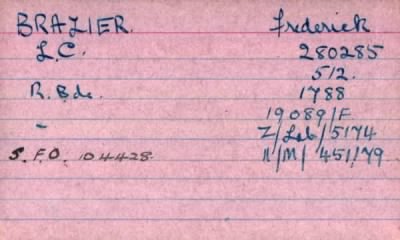 BRAZIER. Frederick
L.C. 280285
512.
R. Bde. 1788
19089/F
- Z/Lab/5174
S.F.O. 104428. R/M/451179